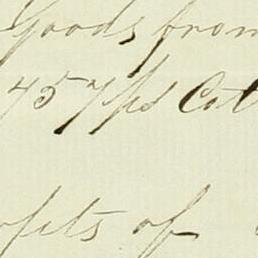 goods from
457 yds Cot
ofits of